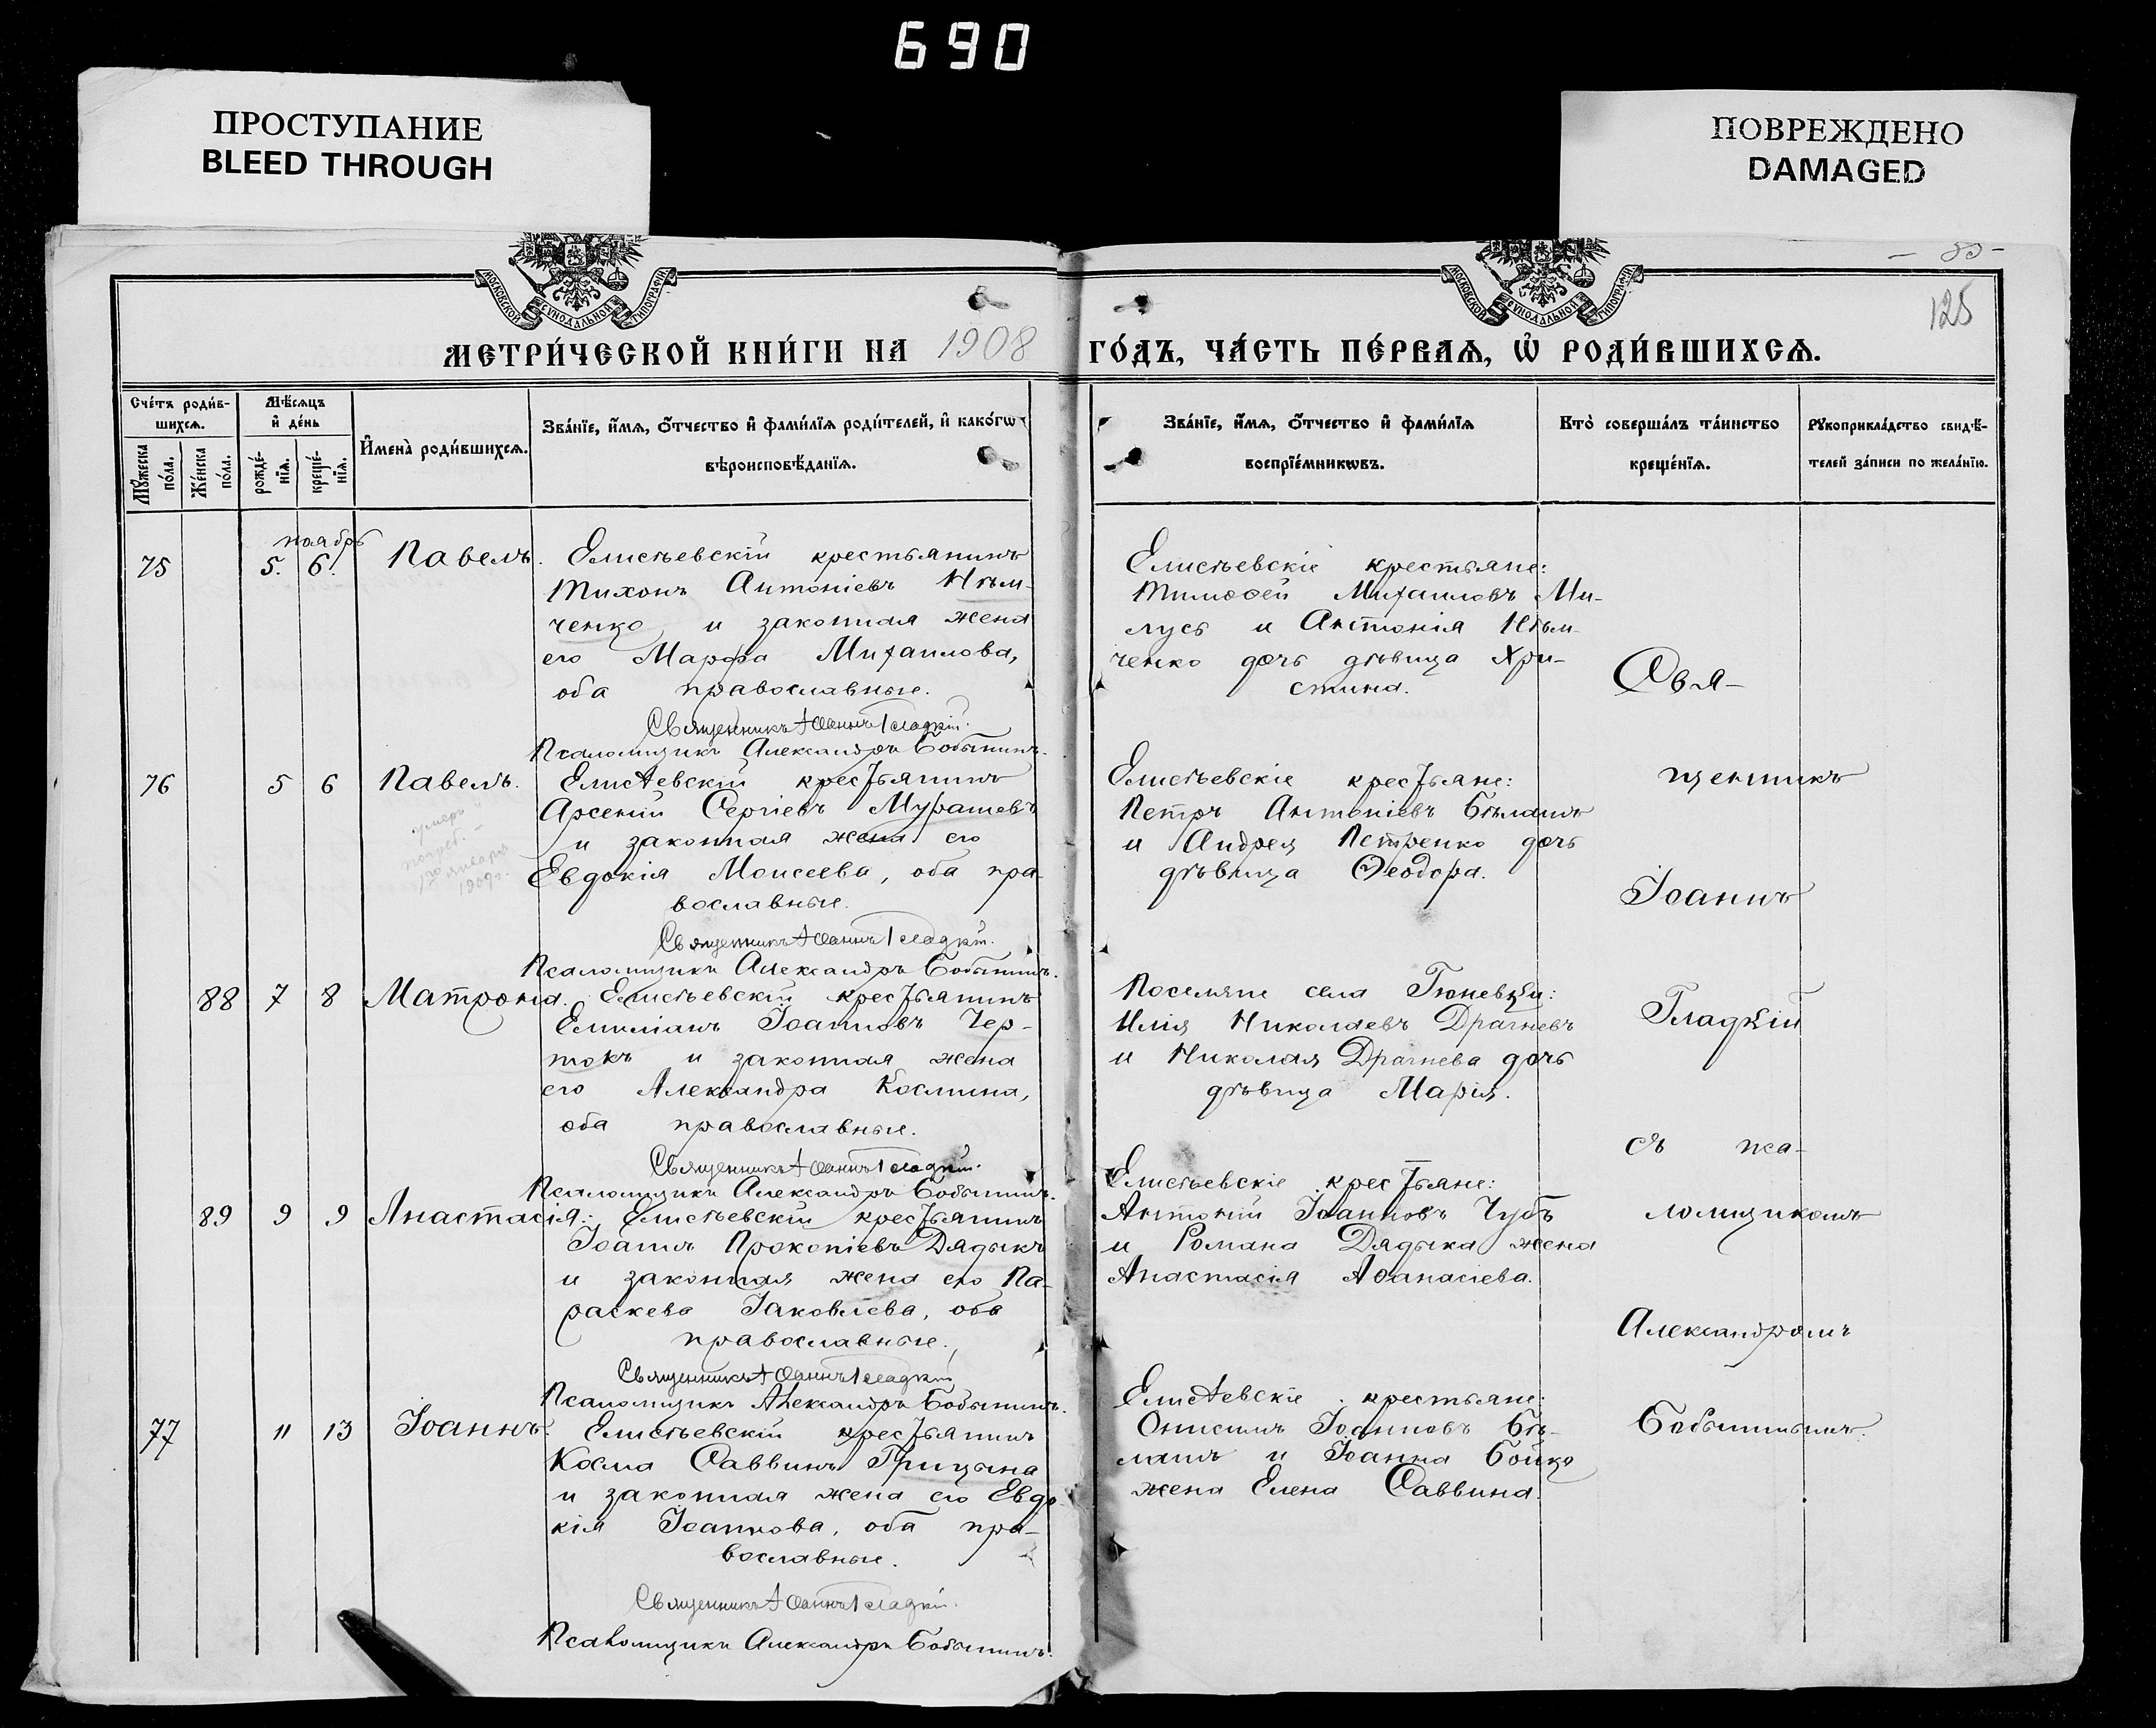 690
ПРОСТУПАНИЕ
BLEED THROUGH
ПОВРЕЖДЕНО
DAMAGED
МОСКОВСКОЙ СѴНОДАЛЬНОЙ ТИПОГРАФІИ
МОСКОВСКОЙ СѴНОДАЛЬНОЙ ТИПОГРАФІИ
125
МЕТРИ́ЧЕСКОЙ КНИ́ГИ НА 1908 ГО́ДЪ, ЧА́СТЬ ПЕ́РВАѦ, Ѡ҆ РОДИ́ВШИХСѦ.
Сче́тъ роди́в-
шихсѧ.
Мꙋ́жеска
по́ла.
Же́нска
по́ла.
Мѣ́сѧцъ
и҆ де́нь
рожде́-
нїѧ.
креще́-
нїѧ.
И҆мена̀ роди́вшихсѧ.
Зва́нїе, и҆́мѧ, ѻ҆́тчество и҆ фами́лїѧ роди́телей, и҆ како́гѡ
вѣроисповѣ́данїѧ.
Зва́нїе, и҆́мѧ, ѻ҆́тчество и҆ фами́лїѧ
воспрїе́мникѡвъ.
Кто̀ соверша́лъ та́инство
креще́нїѧ.
Рꙋкоприкла́дство свидѣ́-
телей за́писи по жела́нїю.
ноябрь
75 5. 6. Павелъ.
Елисѣевскій крестьянинъ
Тихонъ Антоніевъ Нѣм-
ченко и законная жена
его Марѳа Михаилова,
оба православные.
Священникъ Іоаннъ Гладкій.
Псаломщикъ Александръ Бобытинъ.
Елисѣевскіе крестьяне:
Тимоѳей Михаиловъ Ми-
лусь и Антонія Нѣм-
ченко дочь дѣвица Хри-
стина.
76 5 6 Павелъ.
умеръ
погреб.
января
1909 г.
Елисѣевскій крестьянинъ
Арсеній Сергіевъ Мурашевъ
и законная жена его
Евдокія Моисеева, оба пра-
вославные.
Священникъ Іоаннъ Гладкій.
Псаломщикъ Александръ Бобытинъ.
Елисѣевскіе крестьяне:
Петръ Антоніевъ Бѣлашъ
и Андрея Петренко дочь
дѣвица Ѳеодора.
88 7 8 Матрона.
Елисѣевскій крестьянинъ
Емиліанъ Іоанновъ Чер-
токъ и законная жена
его Александра Космина,
оба православные.
Священникъ Іоаннъ Гладкій.
Псаломщикъ Александръ Бобытинъ.
Поселяне села Гюневки:
Илія Николаевъ Драгневъ
и Николая Драгнева дочь
дѣвица Марія.
89 9 9 Анастасія:
Елисѣевскій крестьянинъ
Іоаннъ Прокопіевъ Дядыкъ
и законная жена его Па-
раскева Іаковлева, оба
православные.
Священникъ Іоаннъ Гладкій
Псаломщикъ Александръ Бобытинъ.
Елисѣевскіе крестьяне:
Антоній Іоанновъ Чубъ
и Романа Дядыка жена
Анастасія Аѳанасіева.
77 11 13 Іоаннъ.
Елисѣевскій крестьянинъ
Косма Саввинъ Грицына
и законная жена его Евдо-
кія Іоаннова, оба пра-
вославные.
Священникъ Іоаннъ Гладкій.
Псаломщикъ Александръ Бобытинъ.
Елисѣевскіе крестьяне:
Онисимъ Іоанновъ Бѣ-
лашъ и Іоанна Бойко
жена Елена Саввина.
Свя-
щенникъ
Іоаннъ
Гладкій
съ пса-
ломщикомъ
Александромъ
Бобытинымъ.